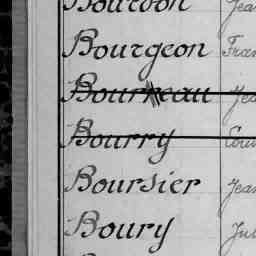 Bourdon Jea
Bourgeon Fran
Bourreau Jea
Bourry Loui
Boursier Jean
Boury Jul